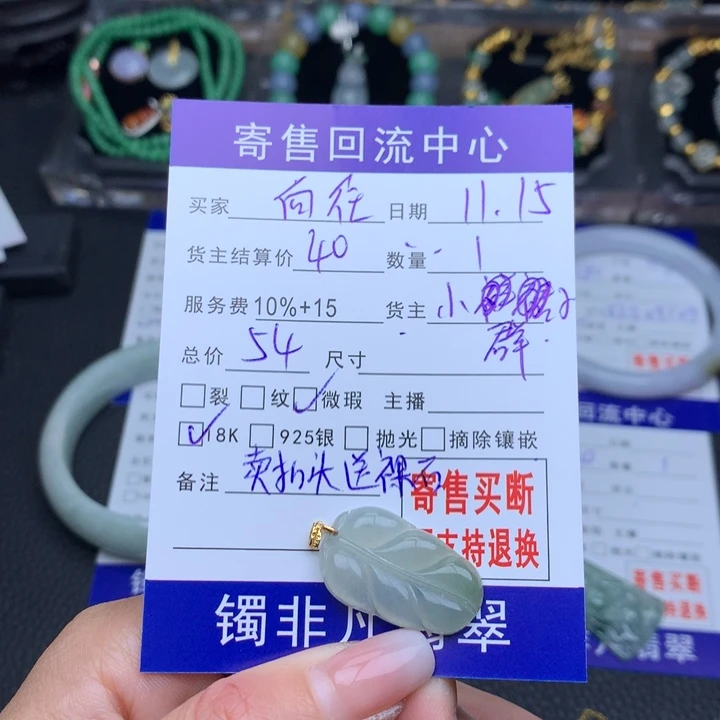 寄售回流中心
买家 向往 日期 11.15
货主结算价 40 数量 1
服务费 10%+15 货主 小
群
总价 54 尺寸
裂 纹 微瑕 主播
18K 925银 抛光 摘除镶嵌
备注 卖扣头送裸石
寄售买断
支持退换
镯非凡翡翠
回流中心
寄售买断
持退换
翡翠